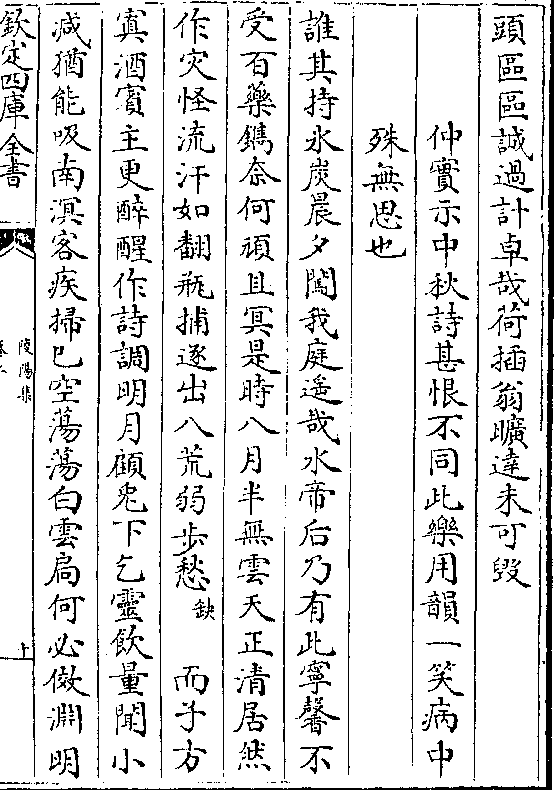 頭區區誠過計卓哉荷插翁曠達未可毀
仲實示中秋詩甚恨不同此樂用韻一笑病中
殊無思也
誰其持氷炭晨夕闖我庭遥哉水帝后乃有此寧馨不
受百藥鐫奈何頑且冥是時八月半無雲天正清居然
作災怪流汗如翻瓶捕逐出八荒弱步愁缺 而子方
寘酒賓主更醉醒作詩調明月顧兔下乞靈飲量聞小
减猶能吸南溟客疾掃已空蕩蕩白雲扃何必傚淵明
欽定四庫全書
陵陽集